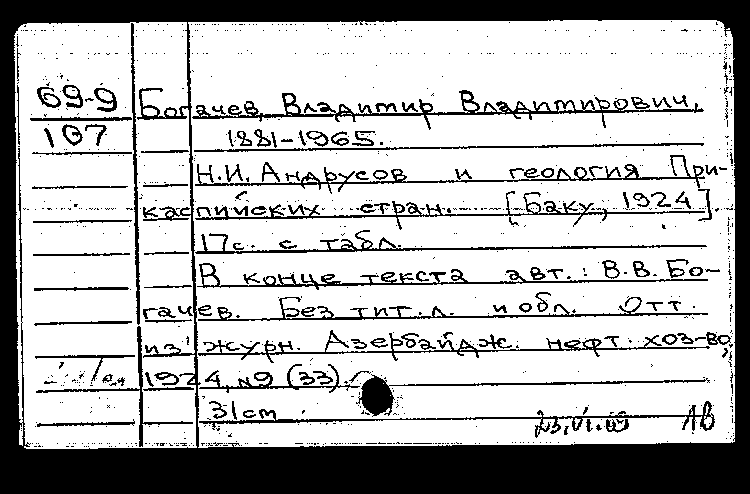 69-9 Богачев, Владимир Владимирович,
107 1881-1965.
Н.И. Андрусов и геология При-
каспийских стран. [Баку, 1924].
17 с. с табл.
В конце текста авт.: В.В. Бо-
гачев. Без тит. л. и обл. Отт.
из журн. Азербайдж. нефт. хоз-во,
1924, №9 (33).
31 cm
23.VI.69 ЛВ